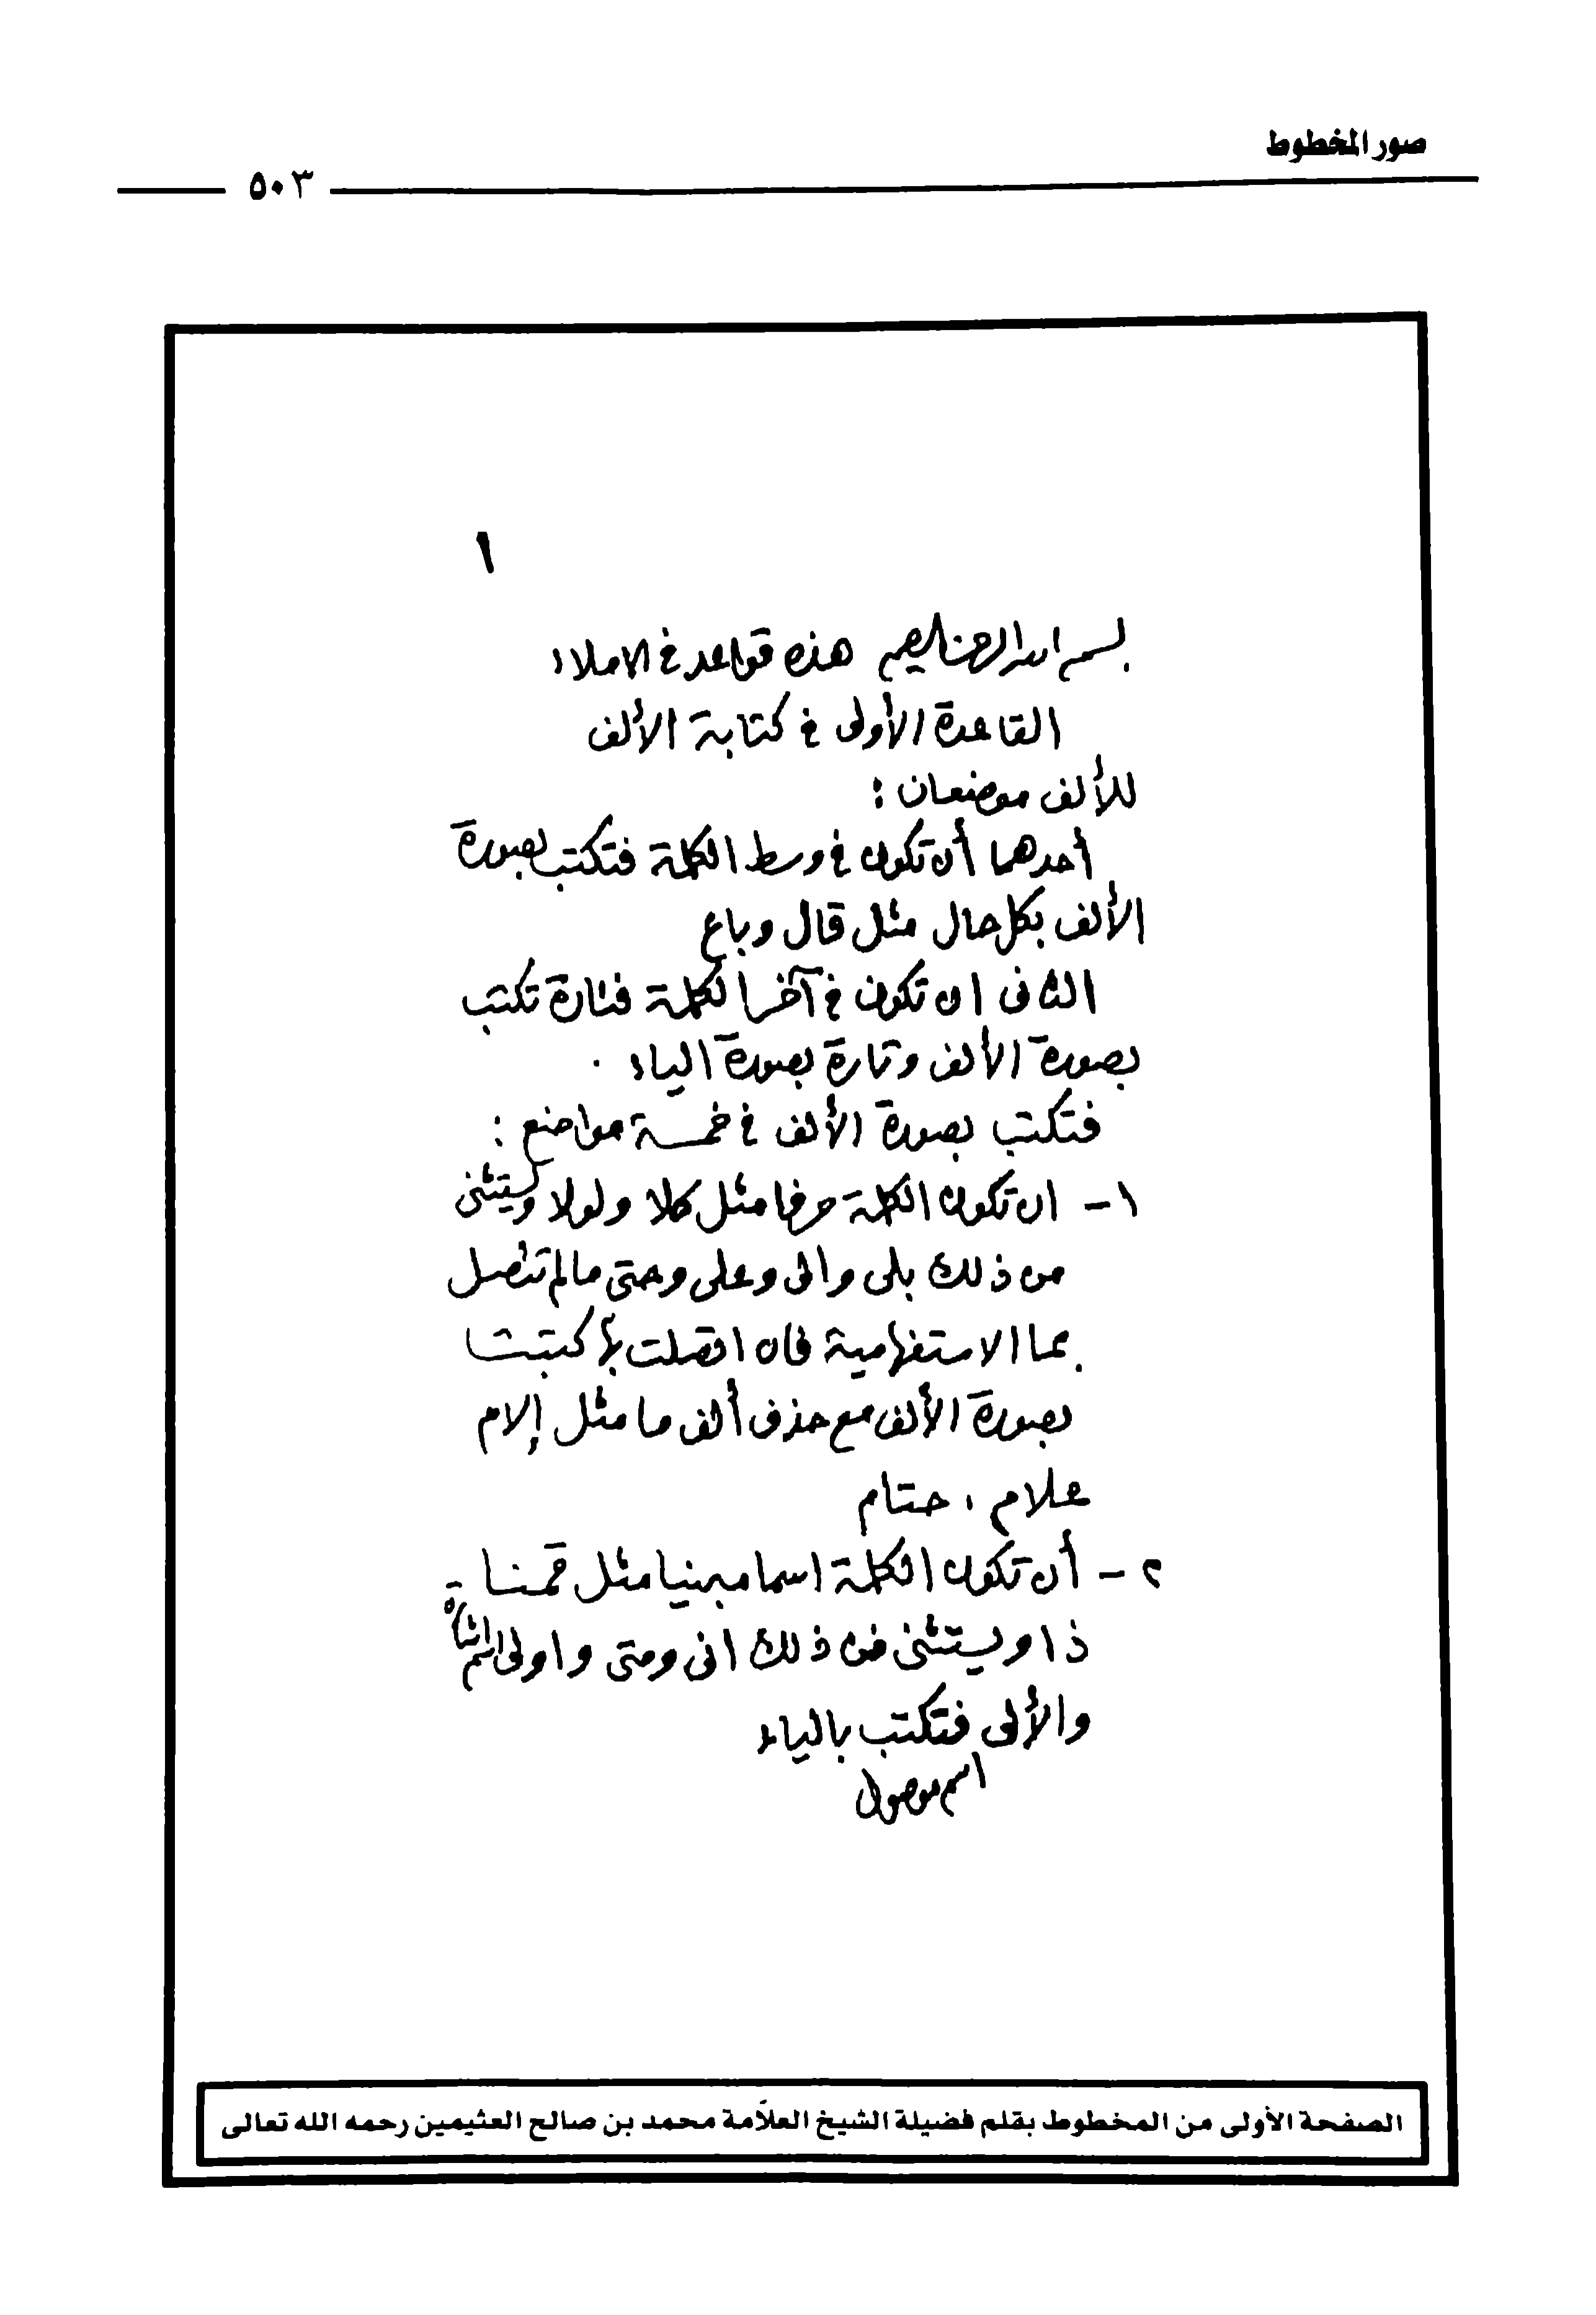 صور المخطوط
٥٠٣
١
بسم الله الرحمن الرحيم هذه قواعد في الاملاء
القاعدة الأولى في كتابة الألف
للألف موضعان :
أحدهما أن تكون في وسط الكلمة فتكتب بصورة
الألف بكل حال مثل قال وباع
الثاني ان تكون في آخر الكلمة فتارة تكتب
بصورة الألف وتارة بصورة الياء .
فتكتب بصورة الألف في خمسة مواضع :
١- ان تكون الكلمة حرفا مثل كلا ولولا ويستثنى
من ذلك بلى والى وعلى وحتى مالم تتصل
بما الاستفهامية فان اتصلت بها كتبت
بصورة الألف مع حذف ألف ما مثل إلام
علام ، حتام
٢- أن تكون الكلمة اسما مبنيا مثل قمنا
ذا ويستثنى من ذلك انى ومتى واولى اسم اشارة
والألى فتكتب بالياء
اسم موصول
الصفحة الأولى من المخطوط بقلم فضيلة الشيخ العلاّمة محمد بن صالح العثيمين رحمه الله تعالى